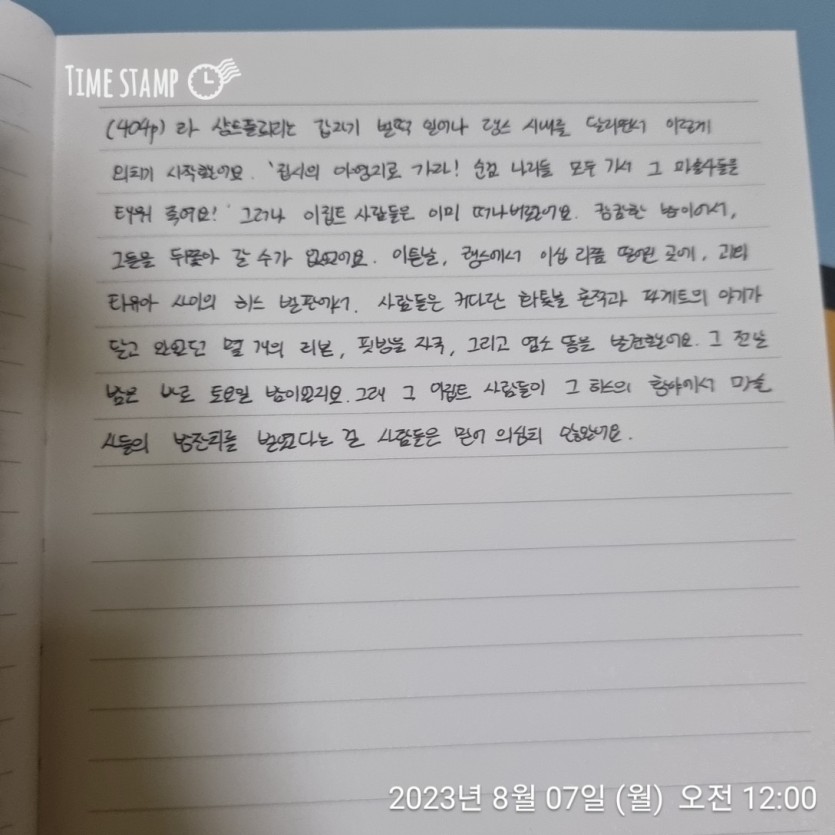 TIME STAMP
(404p) 라 샹트플뢰리는 갑자기 벌떡 일어나 랭스 시내를 달리면서 이렇게
외치기 시작했어요. '집시의 야영지로 가라! 순검 나리들 모두 가서 그 마술사들을
태워 죽여요!' 그러나 이집트 사람들은 이미 떠나버렸어요. 캄캄한 밤이어서,
그들을 뒤쫓아 갈 수가 없었어요. 이튿날, 랭스에서 이십 리쯤 떨어진 곳에, 괴외
타유아 사이의 히스 벌판에서. 사람들은 커다란 화톳불 흔적과 파게트의 아기가
달고 있었던 몇 개의 리본, 핏방울 자국, 그리고 염소 똥을 발견했어요. 그 전날
밤은 바로 토요일 밤이었지요. 그래 그 이집트 사람들이 그 히스의 황야에서 마술
사들의 밤잔치를 벌였다는 걸 사람들은 믿어 의심치 않았어요.
2023년 8월 07일 (월) 오전 12:00